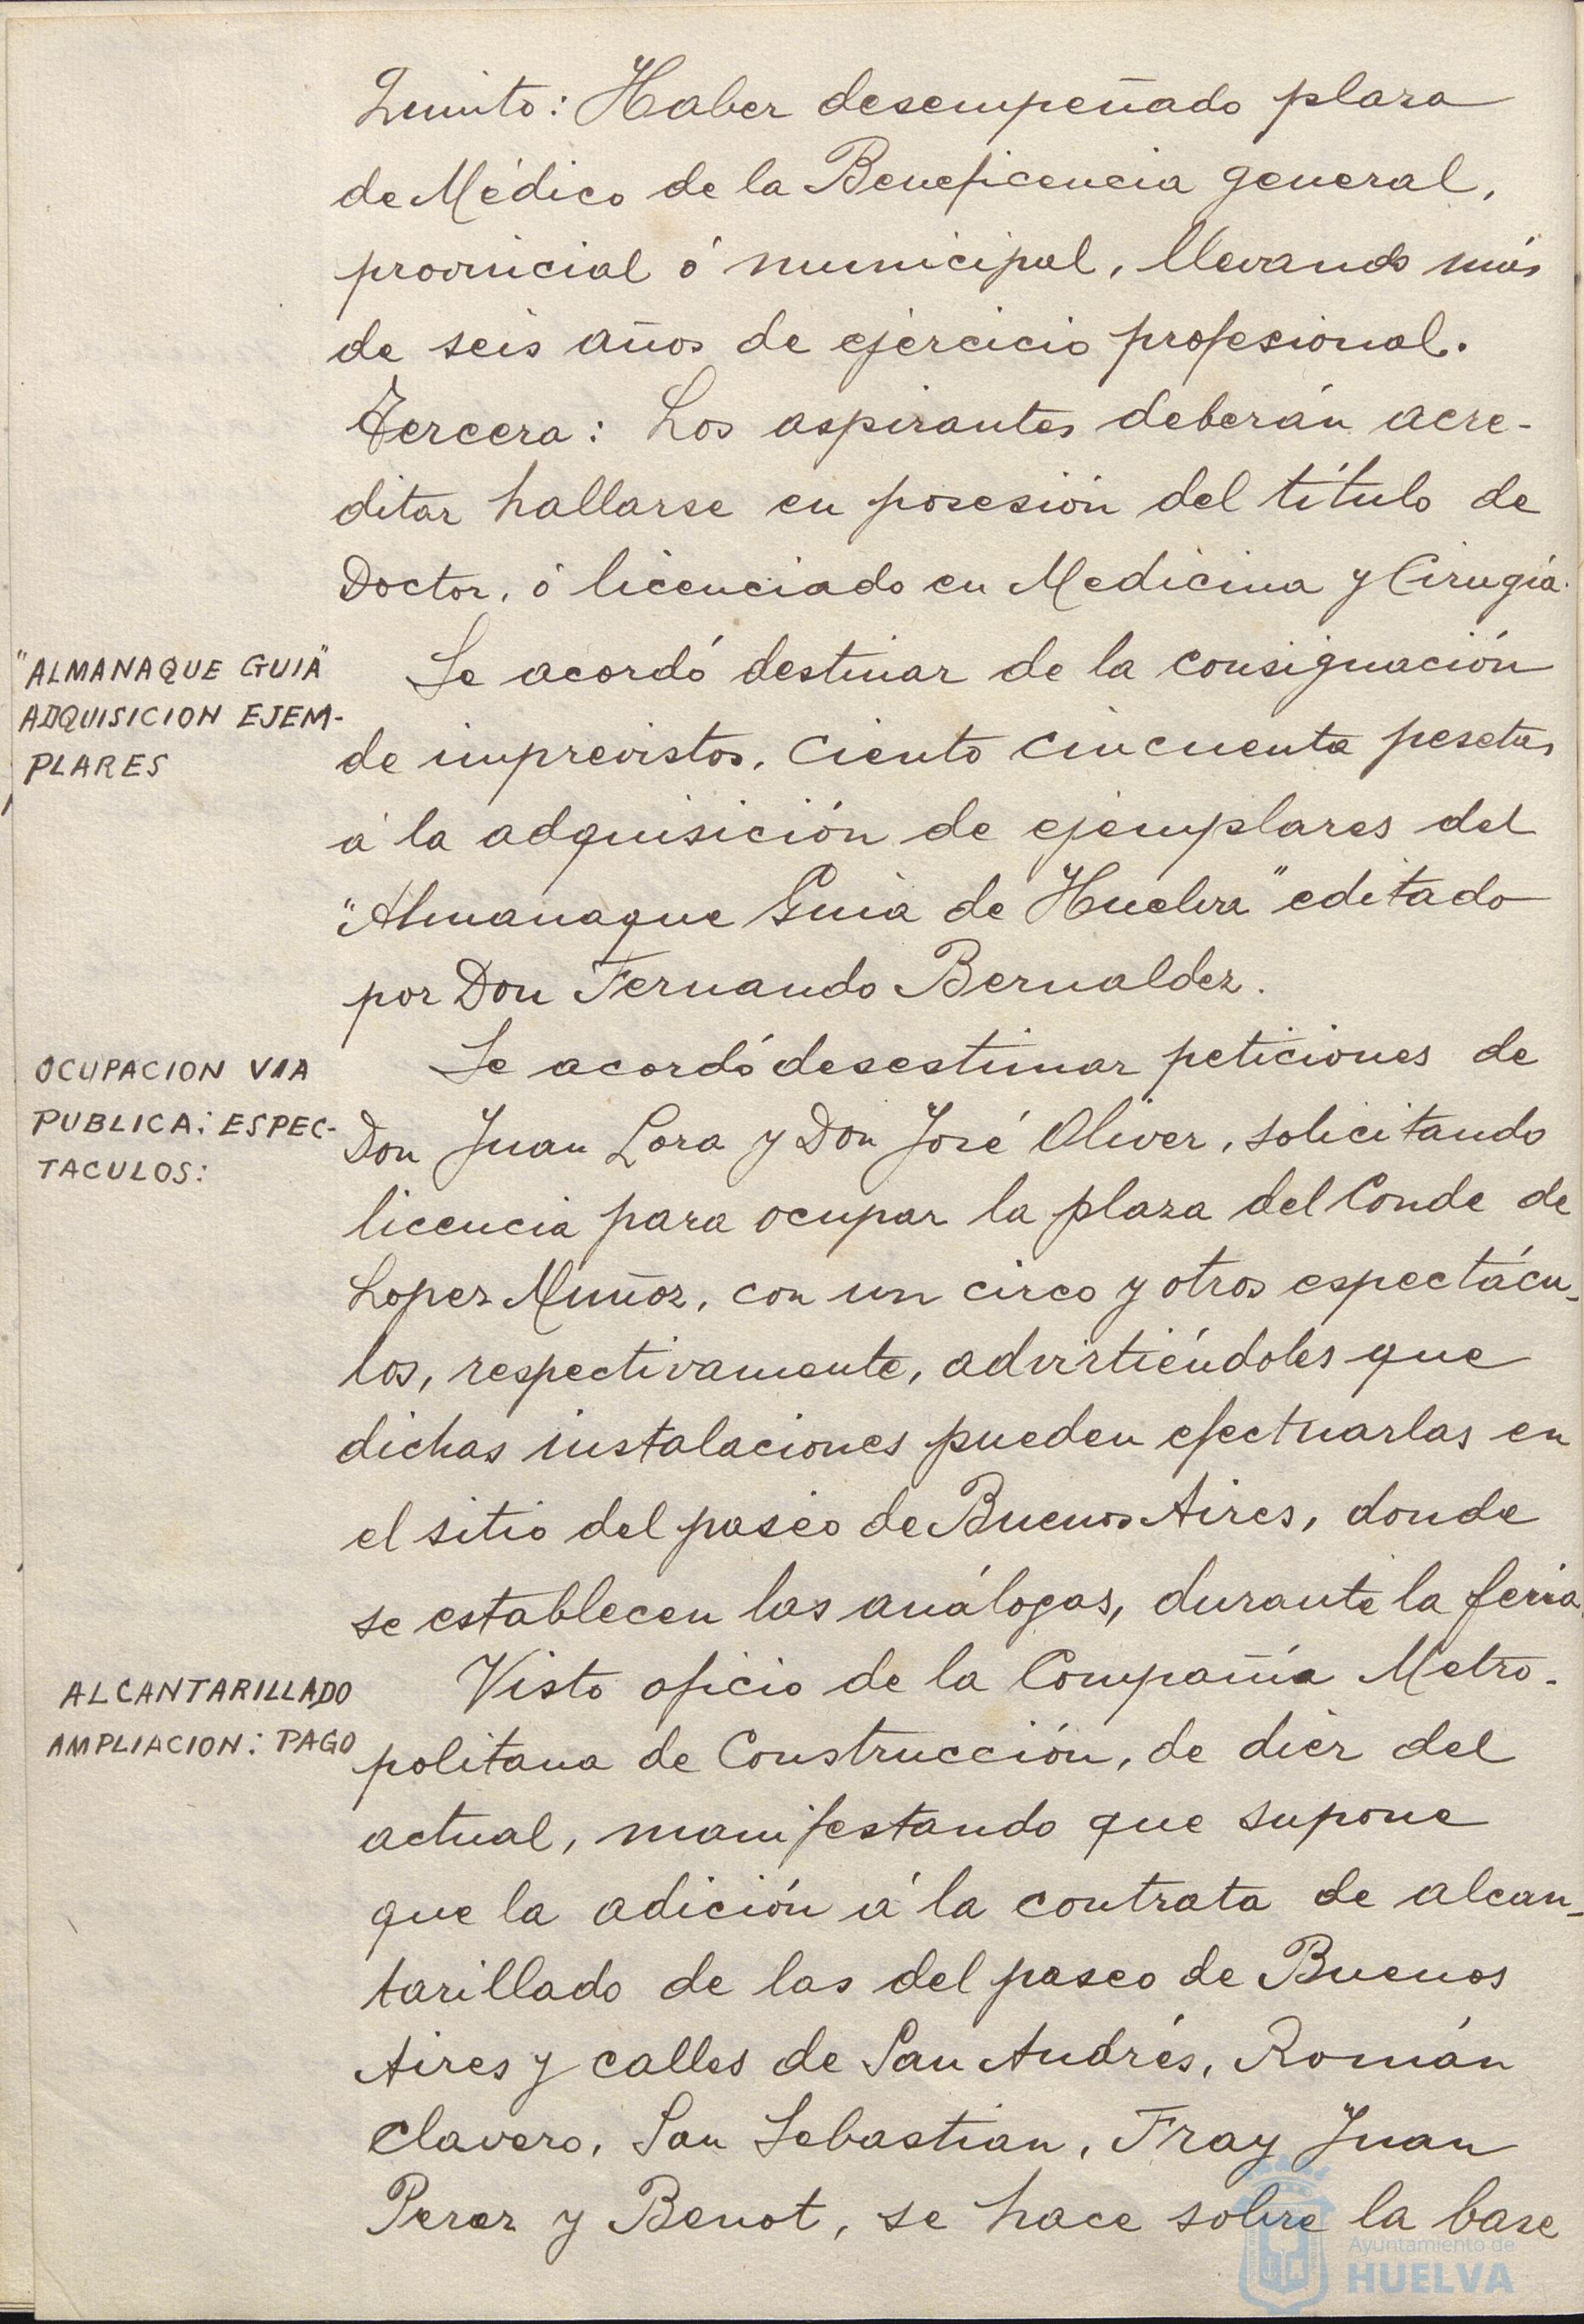 Quinto: Haber desempeñado plaza
de Médico de la Beneficencia general,
provincial ó municipal, llevando más
de seis años de ejercicio profesional.
Tercera: Los aspirantes deberán acre-
ditar hallarse en posesión del título de
Doctor, ó licenciado en Medicina y Cirugía.
"ALMANAQUE GUIA"
ADQUISICION EJEM-
PLARES
Se acordó destinar de la consignación
de imprevistos, ciento cincuenta pesetas
á la adquisición de ejemplares del
"Almanaque Guia de Huelva" editado
por Don Fernando Bernaldez.
OCUPACION VIA
PUBLICA: ESPEC-
TACULOS:
Se acordó desestimar peticiones de
Don Juan Lora y Don José Oliver, solicitando
licencia para ocupar la plaza del Conde de
Lopez Muñoz, con un circo y otros espectácu-
los, respectivamente, advirtiéndoles que
dichas instalaciones pueden efectuarlas en
el sitio del paseo de Buenos Aires, donde
se establecen las análogas, durante la feria.
ALCANTARILLADO
AMPLIACION: PAGO
Visto oficio de la Compañía Metro-
politana de Construcción, de diez del
actual, manifestando que supone
que la adición á la contrata de alcan-
tarillado de las del paseo de Buenos
Aires y calles de San Andrés, Román
Clavero, San Sebastian, Fray Juan
Perez y Benot, se hace sobre la base
Ayuntamiento de
HUELVA